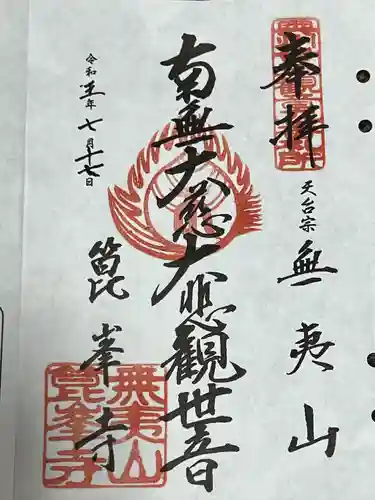 奉拝
天台宗 無夷山
南無大慈大悲観世音
箆峯寺
令和五年七月十七日
無夷山
箆峯寺